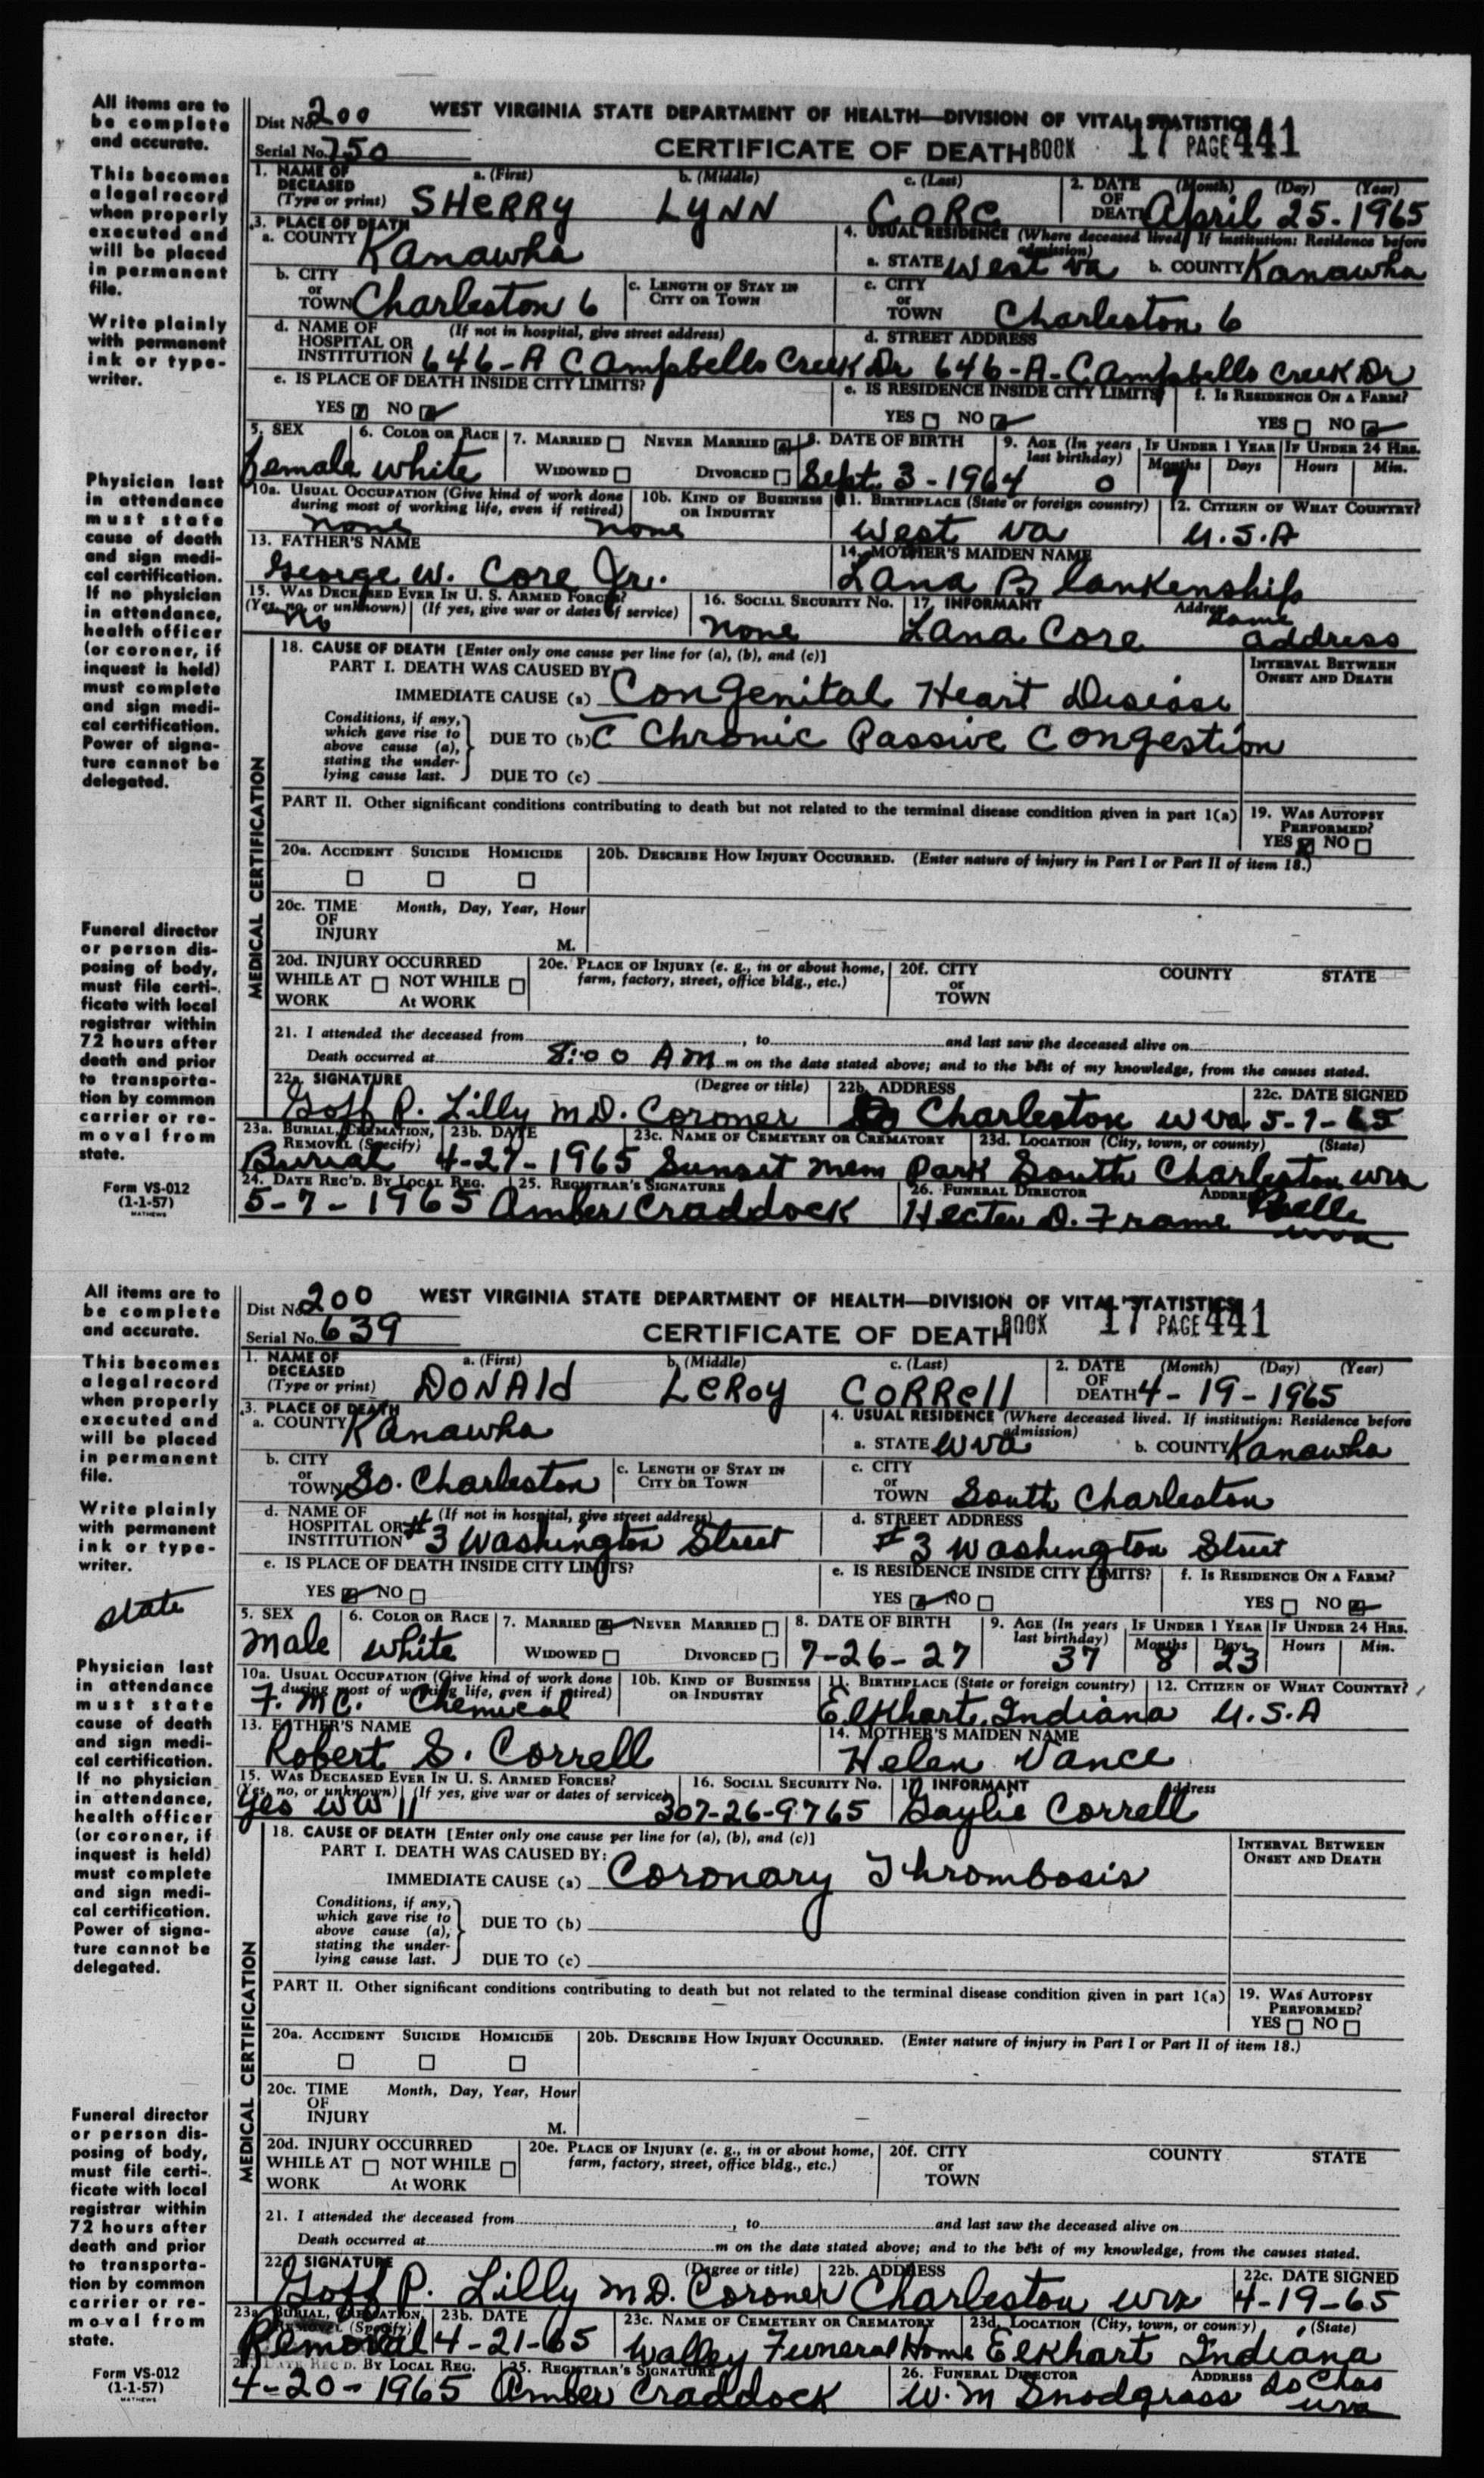 All items are to be complete and accurate.
This becomes a legal record when properly executed and will be placed in permanent file.
Write plainly with permanent ink or typewriter.
Physician last in attendance must state cause of death and sign medical certification. If no physician in attendance, health officer (or coroner, if inquest is held) must complete and sign medical certification. Power of signature cannot be delegated.
Funeral director or person disposing of body, must file certificate with local registrar within 72 hours after death and prior to transportation by common carrier or removal from state.
Form VS-012
(1-1-57)
MATHEWS
Dist No. 200
WEST VIRGINIA STATE DEPARTMENT OF HEALTH—DIVISION OF VITAL STATISTICS
Serial No. 750
CERTIFICATE OF DEATH BOOK 17 PAGE 441
1. NAME OF DECEASED (Type or print) a. (First) b. (Middle) c. (Last)
SHERRY LYNN CORE
2. DATE OF DEATH (Month) (Day) (Year) April 25-1965
3. PLACE OF DEATH
a. COUNTY Kanawha
4. USUAL RESIDENCE (Where deceased lived. If institution: Residence before admission)
a. STATE West Va b. COUNTY Kanawha
b. CITY or TOWN Charleston 6
c. LENGTH OF STAY IN CITY OR TOWN
c. CITY or TOWN Charleston 6
d. NAME OF HOSPITAL OR INSTITUTION (If not in hospital, give street address) 646-A Campbells Creek Dr
d. STREET ADDRESS 646-A-Campbells Creek Dr
e. IS PLACE OF DEATH INSIDE CITY LIMITS? YES NO
e. IS RESIDENCE INSIDE CITY LIMITS? YES NO
f. IS RESIDENCE ON A FARM? YES NO
5. SEX Female
6. COLOR OR RACE White
7. MARRIED NEVER MARRIED WIDOWED DIVORCED
8. DATE OF BIRTH Sept 3-1964
9. AGE (In years last birthday) 0
IF UNDER 1 YEAR Months 7 Days
IF UNDER 24 HRS. Hours Min.
10a. USUAL OCCUPATION (Give kind of work done during most of working life, even if retired) none
10b. KIND OF BUSINESS OR INDUSTRY none
11. BIRTHPLACE (State or foreign country) West Va
12. CITIZEN OF WHAT COUNTRY? U.S.A
13. FATHER'S NAME George W. Core Jr.
14. MOTHER'S MAIDEN NAME Lana Blankenship
15. WAS DECEASED EVER IN U. S. ARMED FORCES? (Yes, no, or unknown) (If yes, give war or dates of service) No
16. SOCIAL SECURITY NO. none
17. INFORMANT Lana Core Address Same address
MEDICAL CERTIFICATION
18. CAUSE OF DEATH [Enter only one cause per line for (a), (b), and (c)]
INTERVAL BETWEEN ONSET AND DEATH
PART I. DEATH WAS CAUSED BY:
IMMEDIATE CAUSE (a) Congenital Heart Disease
Conditions, if any, which gave rise to above cause (a), stating the underlying cause last.
DUE TO (b) c̄ Chronic Passive Congestion
DUE TO (c)
PART II. Other significant conditions contributing to death but not related to the terminal disease condition given in part 1(a)
19. WAS AUTOPSY PERFORMED? YES NO
20a. ACCIDENT SUICIDE HOMICIDE
20b. DESCRIBE HOW INJURY OCCURRED. (Enter nature of injury in Part I or Part II of item 18.)
20c. TIME OF INJURY Month, Day, Year, Hour M.
20d. INJURY OCCURRED WHILE AT WORK NOT WHILE At WORK
20e. PLACE OF INJURY (e. g., in or about home, farm, factory, street, office bldg., etc.)
20f. CITY or TOWN COUNTY STATE
21. I attended the deceased from , to and last saw the deceased alive on
Death occurred at 8:00 AM m on the date stated above; and to the best of my knowledge, from the causes stated.
22a. SIGNATURE (Degree or title) Goff P. Lilly MD. Coroner
22b. ADDRESS Charleston WVa
22c. DATE SIGNED 5-7-65
23a. BURIAL, CREMATION, REMOVAL (Specify) Burial
23b. DATE 4-27-1965
23c. NAME OF CEMETERY OR CREMATORY Sunset Mem Park
23d. LOCATION (City, town, or county) (State) South Charleston WVa
24. DATE REC'D. BY LOCAL REG. 5-7-1965
25. REGISTRAR'S SIGNATURE Amber Craddock
26. FUNERAL DIRECTOR Hecter D. Frame ADDRESS Belle WVa
All items are to be complete and accurate.
This becomes a legal record when properly executed and will be placed in permanent file.
Write plainly with permanent ink or typewriter.
state
Physician last in attendance must state cause of death and sign medical certification. If no physician in attendance, health officer (or coroner, if inquest is held) must complete and sign medical certification. Power of signature cannot be delegated.
Funeral director or person disposing of body, must file certificate with local registrar within 72 hours after death and prior to transportation by common carrier or removal from state.
Form VS-012
(1-1-57)
MATHEWS
Dist No. 200
WEST VIRGINIA STATE DEPARTMENT OF HEALTH—DIVISION OF VITAL STATISTICS
Serial No. 639
CERTIFICATE OF DEATH BOOK 17 PAGE 441
1. NAME OF DECEASED (Type or print) a. (First) b. (Middle) c. (Last)
DONALd LeRoy CORRell
2. DATE OF DEATH (Month) (Day) (Year) 4-19-1965
3. PLACE OF DEATH
a. COUNTY Kanawha
4. USUAL RESIDENCE (Where deceased lived. If institution: Residence before admission)
a. STATE WVa b. COUNTY Kanawha
b. CITY or TOWN So. Charleston
c. LENGTH OF STAY IN CITY OR TOWN
c. CITY or TOWN South Charleston
d. NAME OF HOSPITAL OR INSTITUTION (If not in hospital, give street address) #3 Washington Street
d. STREET ADDRESS #3 Washington Street
e. IS PLACE OF DEATH INSIDE CITY LIMITS? YES NO
e. IS RESIDENCE INSIDE CITY LIMITS? YES NO
f. IS RESIDENCE ON A FARM? YES NO
5. SEX Male
6. COLOR OR RACE White
7. MARRIED NEVER MARRIED WIDOWED DIVORCED
8. DATE OF BIRTH 7-26-27
9. AGE (In years last birthday) 37
IF UNDER 1 YEAR Months 8 Days 23
IF UNDER 24 HRS. Hours Min.
10a. USUAL OCCUPATION (Give kind of work done during most of working life, even if retired) F. MC. Chemical
10b. KIND OF BUSINESS OR INDUSTRY
11. BIRTHPLACE (State or foreign country) Elkhart, Indiana
12. CITIZEN OF WHAT COUNTRY? U.S.A
13. FATHER'S NAME Robert S. Correll
14. MOTHER'S MAIDEN NAME Helen Vance
15. WAS DECEASED EVER IN U. S. ARMED FORCES? (Yes, no, or unknown) (If yes, give war or dates of service) Yes WW II
16. SOCIAL SECURITY NO. 307-26-9765
17. INFORMANT Gaylie Correll Address
MEDICAL CERTIFICATION
18. CAUSE OF DEATH [Enter only one cause per line for (a), (b), and (c)]
INTERVAL BETWEEN ONSET AND DEATH
PART I. DEATH WAS CAUSED BY:
IMMEDIATE CAUSE (a) Coronary Thrombosis
Conditions, if any, which gave rise to above cause (a), stating the underlying cause last.
DUE TO (b)
DUE TO (c)
PART II. Other significant conditions contributing to death but not related to the terminal disease condition given in part 1(a)
19. WAS AUTOPSY PERFORMED? YES NO
20a. ACCIDENT SUICIDE HOMICIDE
20b. DESCRIBE HOW INJURY OCCURRED. (Enter nature of injury in Part I or Part II of item 18.)
20c. TIME OF INJURY Month, Day, Year, Hour M.
20d. INJURY OCCURRED WHILE AT WORK NOT WHILE At WORK
20e. PLACE OF INJURY (e. g., in or about home, farm, factory, street, office bldg., etc.)
20f. CITY or TOWN COUNTY STATE
21. I attended the deceased from , to and last saw the deceased alive on
Death occurred at m on the date stated above; and to the best of my knowledge, from the causes stated.
22a. SIGNATURE (Degree or title) Goff P. Lilly MD. Coroner
22b. ADDRESS Charleston WVa
22c. DATE SIGNED 4-19-65
23a. BURIAL, CREMATION, REMOVAL (Specify) Removal
23b. DATE 4-21-65
23c. NAME OF CEMETERY OR CREMATORY Walley Funeral Home
23d. LOCATION (City, town, or county) (State) Elkhart Indiana
24. DATE REC'D. BY LOCAL REG. 4-20-1965
25. REGISTRAR'S SIGNATURE Amber Craddock
26. FUNERAL DIRECTOR W. M Snodgrass ADDRESS So Chas WVa